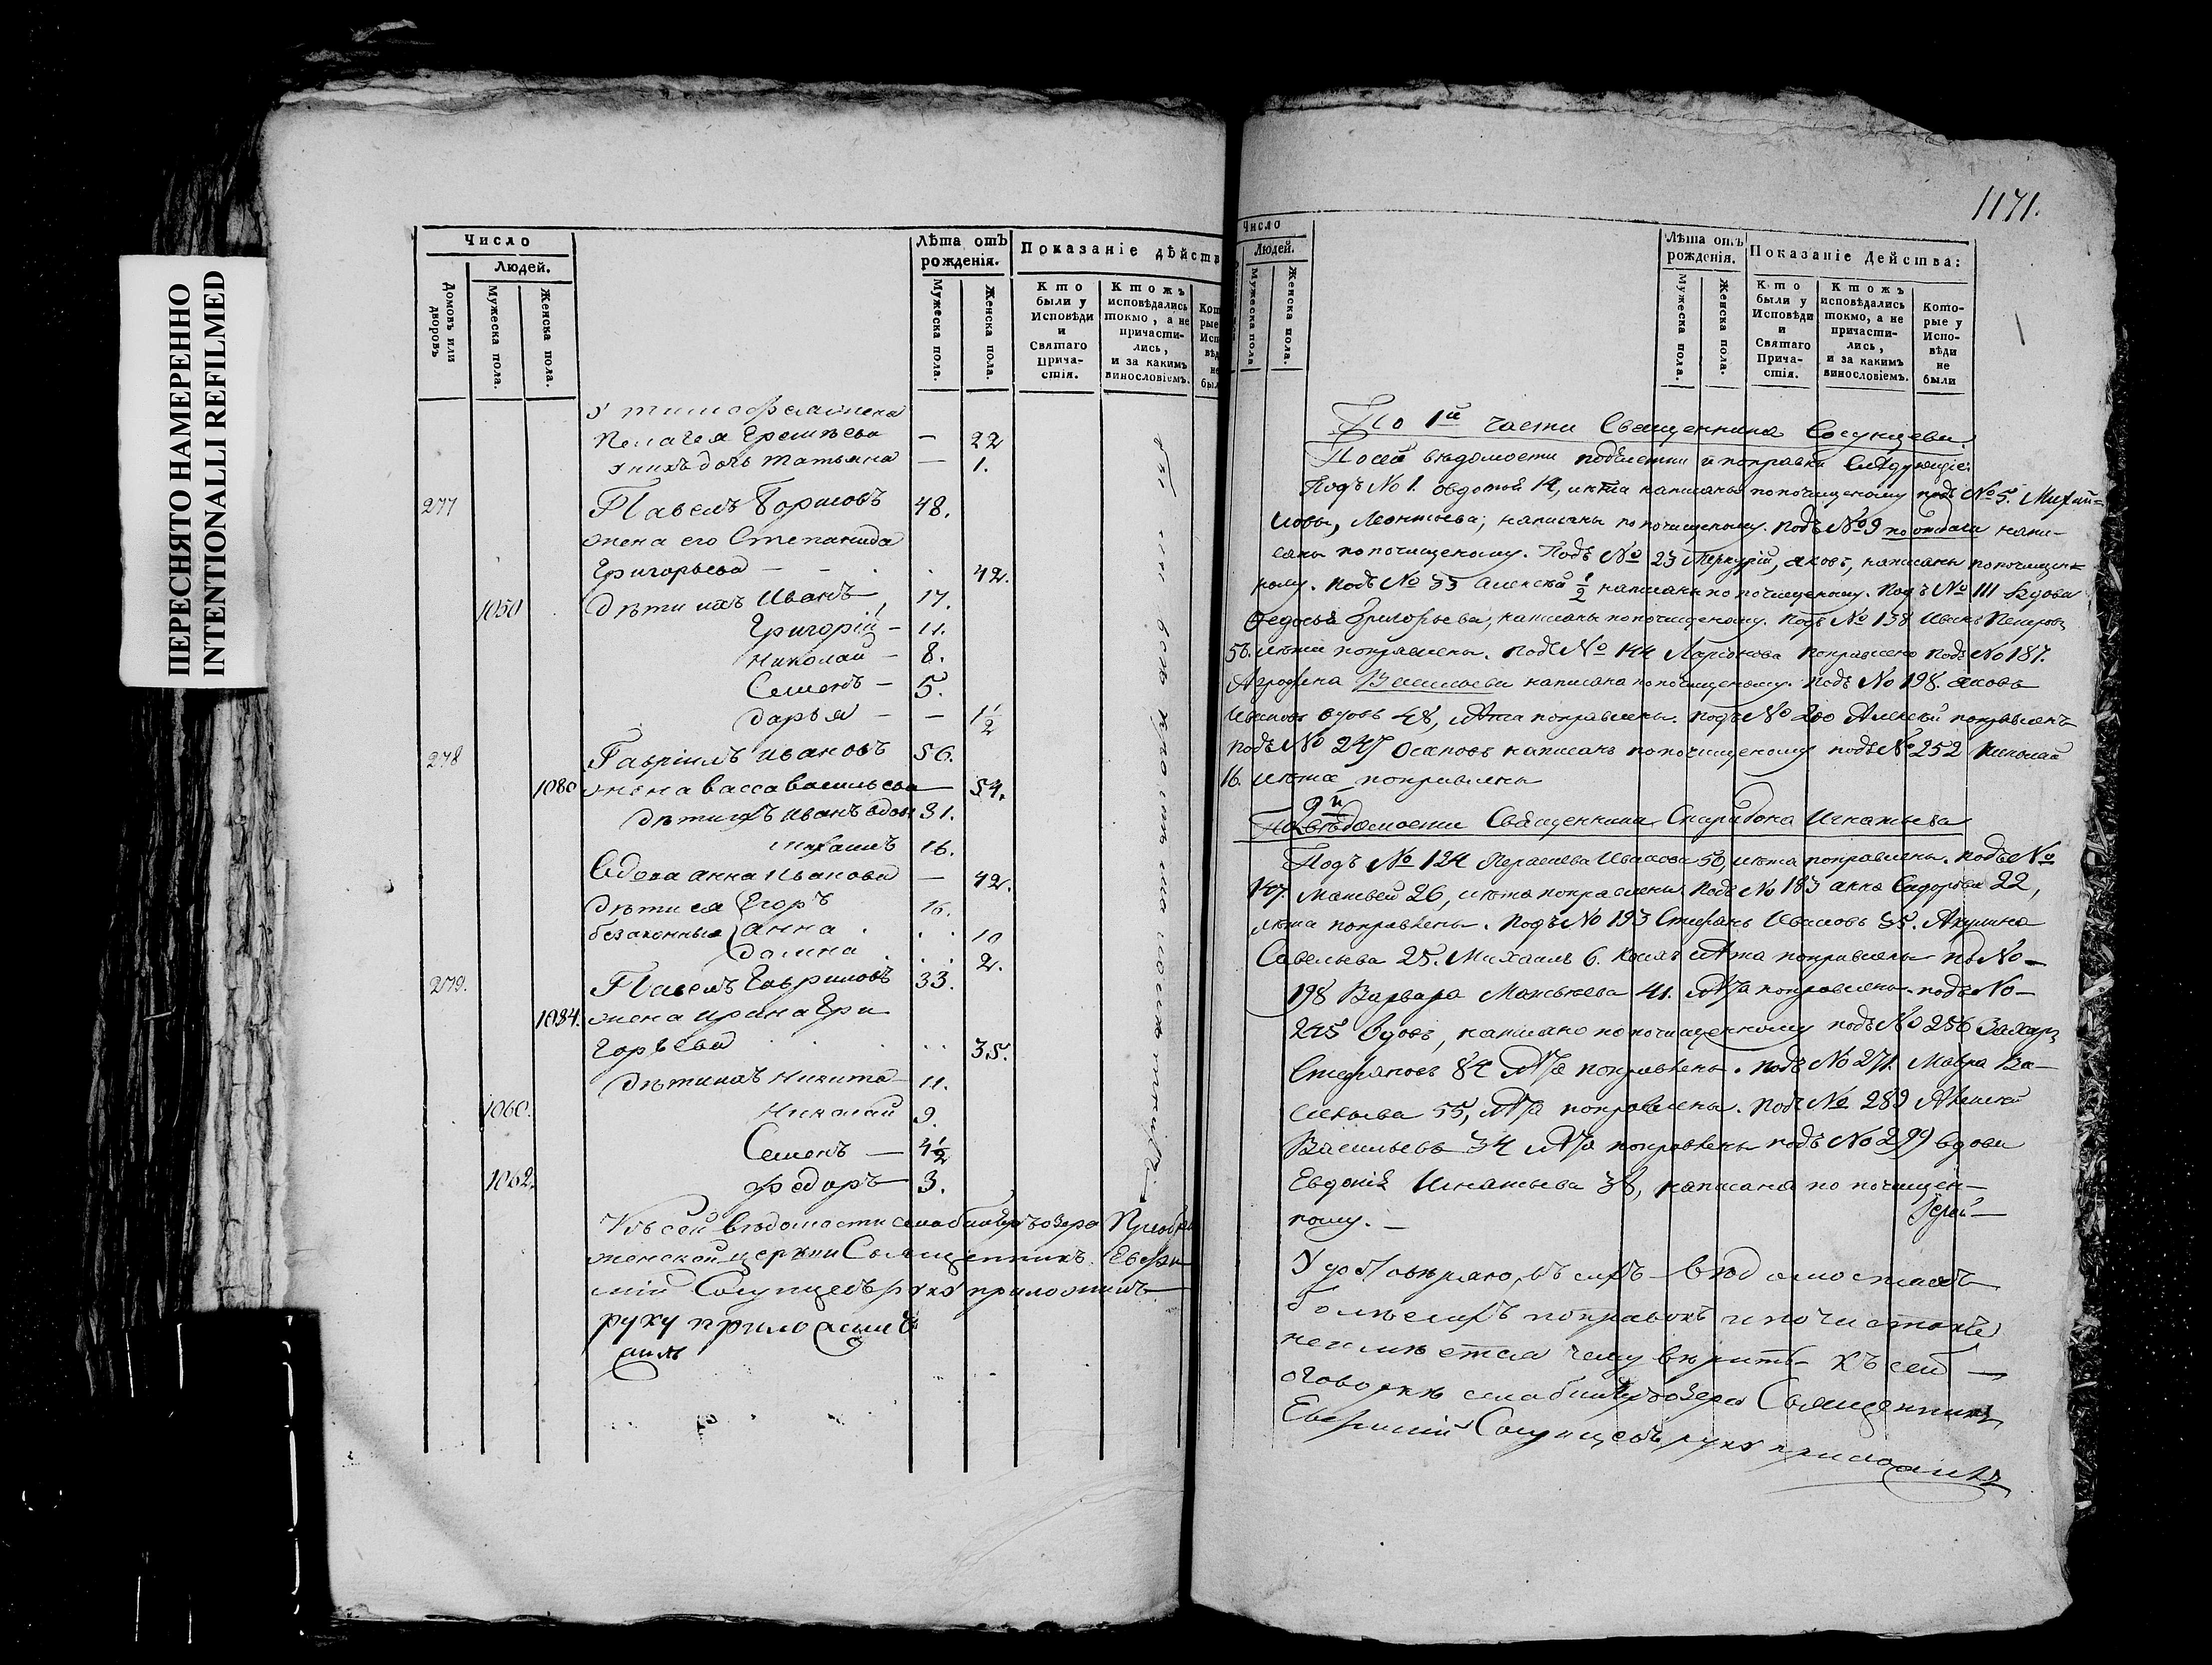 ПЕРЕСНЯТО НАМЕРЕННО
INTENTIONALLI REFILMED
Число
Людей.
Домовъ или дворовъ
Мужеска пола.
Женска пола.
Лѣта отъ рожденія.
Мужеска пола.
Женска пола.
Показаніе дѣйств
Кто были у Исповѣди и Святаго Прича-стія.
Ктожъ исповѣдались токмо, а не причасти-лись, и за какимъ винословіемъ.
У Тимофея жена
Пелагея — 22
У нихъ дочь Татьяна — 1.
277 Павелъ Борисовъ 48.
жена его Степанида
Григорьева — 42.
1050 Дѣти ихъ Иванъ 17.
Григорій — 11.
Николай — 8.
Семенъ — 5.
Дарья — — 1½
278 Гавріилъ Ивановъ 56.
1080 жена Васса Васильева 54.
Дѣти ихъ Иванъ вдовъ 31.
16.
Вдова Анна Иванова — 42.
Дѣти ея Егоръ 16.
безаконныя Анна . . . 10
. . . 2.
279. Павелъ Гавриловъ 33.
1084. жена Ирина Гри
горьева . . . . 35.
Дѣти ихъ Никита 11.
1060. Николай 9.
Семенъ — 4½
1062. Федоръ — 3.
Къ сей вѣдомости села
женской церкви Священникъ Евфи
мій Сосунцевъ руку приложилъ
руку приложилъ
1171.
Число
Людей.
Мужеска пола
Женска пола.
Лѣта отъ рожденія.
Мужеска пола.
Женска пола.
Показаніе Действа:
Кто были у Исповѣди и Святаго Прича-стія.
Ктожъ исповѣдались токмо, а не причасти-лись, и за какимъ винословіемъ.
Кото-рые у Испо-вѣди не были
По 1й части Священника Сосунцева.
По сей вѣдомости подчистки и поправки слѣдующіе:
Подъ № 1. 14, лѣта написаны по почищеному подъ № 5. Михай=
лова, Леонтьева, написаны по почищеному. Подъ № 9 напи-
саны по почищеному. Подъ № 23 Меркурій, Яковъ, написаны по почищен=
ному. Подъ № 33 Алексѣй ½ написаны по почищеному. Подъ № 111 Вдова
Федосья Григорьева, написаны по почищеному. Подъ № 138 Иванъ Петровъ
58. лѣта поправлены. Подъ № 144 Ларіонова поправлено подъ № 187.
Агрофена Васильева написана по почищеному. Подъ № 198. Яковъ
Ивановъ вдовъ 48, лѣта поправлены. Подъ № 200 Алексѣй поправленъ
Подъ № 247 Осиповъ написанъ по почищеному подъ № 252 Николай
16. лѣта поправлены
По 2й вѣдомости Священника Спиридона Игнатьева
Подъ № 124 Иванова 50, лѣта поправлены. Подъ №
147. Матвей 26, лѣта поправлены. Подъ № 183 Анна Сидорова 22,
лѣта поправлены. Подъ № 193 Стефанъ Ивановъ 35. Акулина
Савельева 25. Михаилъ 6. коихъ лѣта поправлены подъ № —
198 Варвара Матвѣева 41. лѣта поправлены. подъ № —
245 вдовъ, написано по почищенному подъ № 256 Захаръ
Стефановъ 84 лѣта поправлены. Подъ № 271. Мавра Ва-
сильева 55, лѣта поправлены. Подъ № 289 Алексѣй
Васильевъ 34 лѣта поправлены подъ № 299 вдова
Евдокія Игнатьева 38, написана по почищен-
ному. —
Удостовѣряю, въ сихъ вѣдомостяхъ
болѣе сихъ поправокъ и почистокъ
не имѣется чему вѣрить къ сей —
оговоркѣ села Священникъ
Евфимій Сосунцевъ руку приложилъ